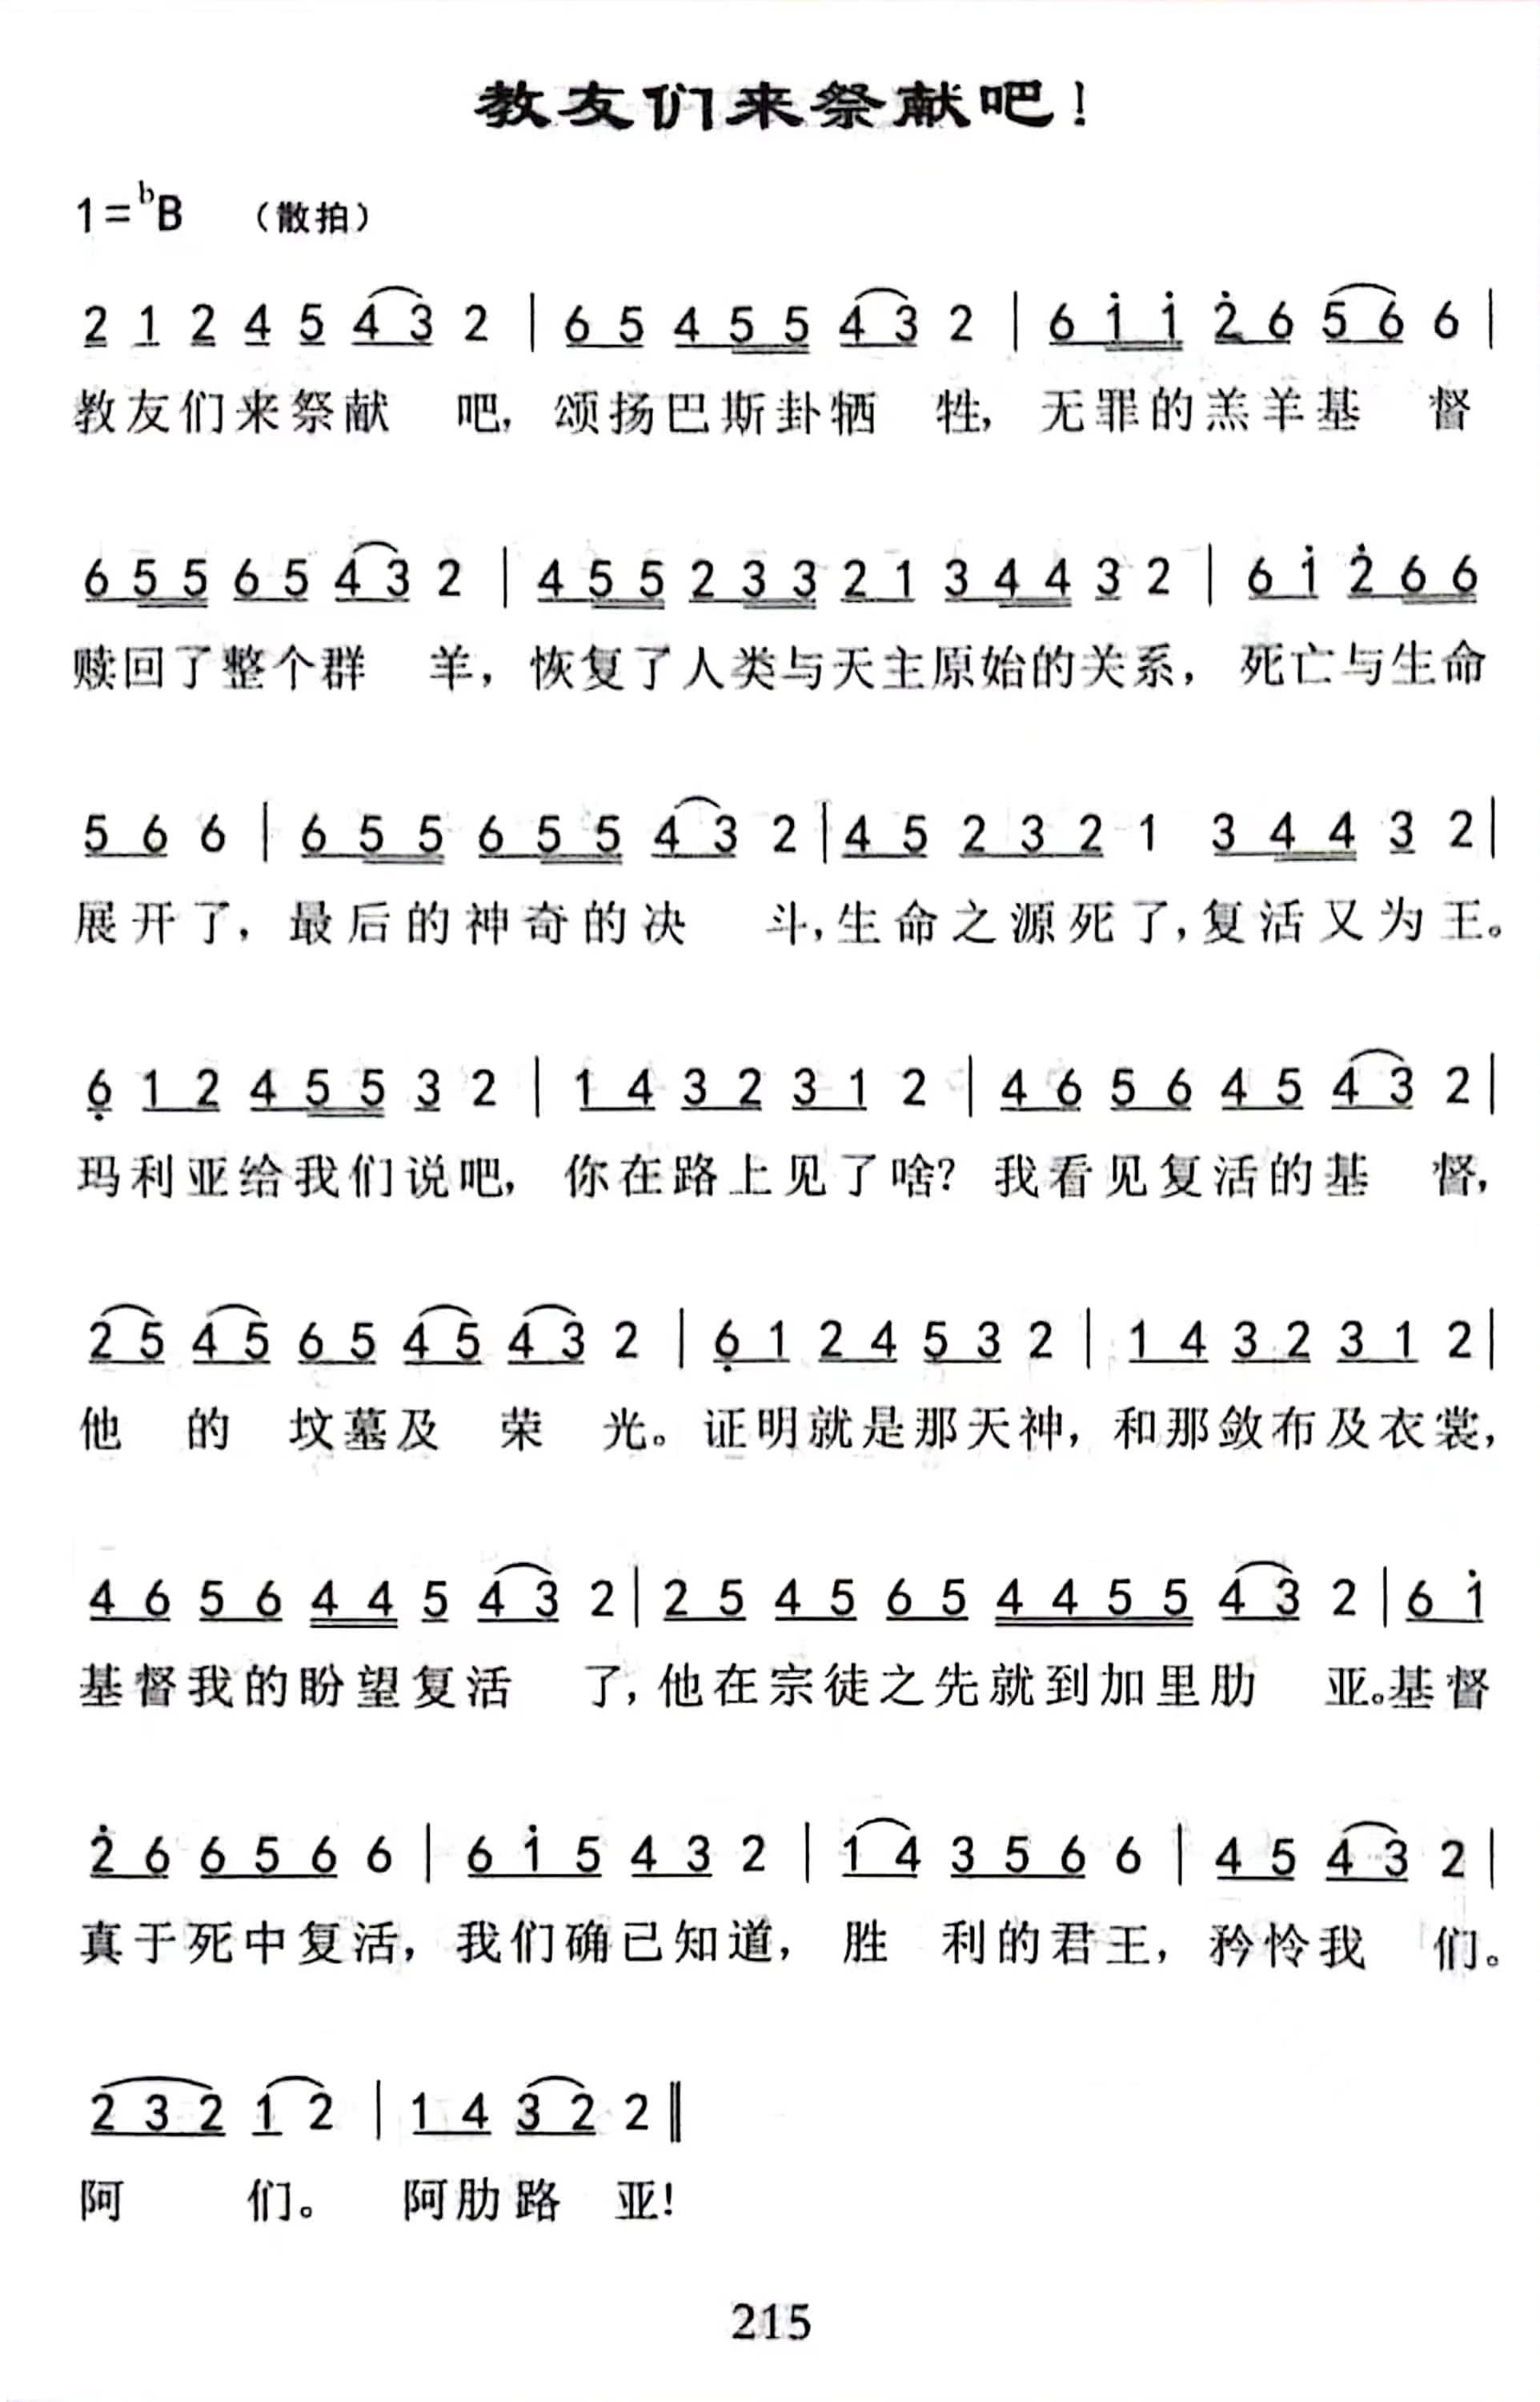 教友们来祭献吧！
1=ᵇB （散拍）
2 1 2 4 5 4 3 2 | 6 5 4 5 5 4 3 2 | 6 i i 2̇ 6 5 6 6 |
教友们来祭献 吧, 颂扬巴斯卦牺 牲, 无罪的羔羊基 督
6 5 5 6 5 4 3 2 | 4 5 5 2 3 3 2 1 3 4 4 3 2 | 6 i 2̇ 6 6
赎回了整个群 羊, 恢复了人类与天主原始的关系, 死亡与生命
5 6 6 | 6 5 5 6 5 5 4 3 2 | 4 5 2 3 2 1 3 4 4 3 2 |
展开了, 最后的神奇的决 斗, 生命之源死了, 复活又为王。
6̣ 1 2 4 5 5 3 2 | 1 4 3 2 3 1 2 | 4 6 5 6 4 5 4 3 2 |
玛利亚给我们说吧, 你在路上见了啥? 我看见复活的基 督,
2 5 4 5 6 5 4 5 4 3 2 | 6̣ 1 2 4 5 3 2 | 1 4 3 2 3 1 2 |
他 的 坟墓及 荣 光。证明就是那天神, 和那敛布及衣裳,
4 6 5 6 4 4 5 4 3 2 | 2 5 4 5 6 5 4 4 5 5 4 3 2 | 6 i
基督我的盼望复活 了, 他在宗徒之先就到加里肋 亚。基督
2̇ 6 6 5 6 6 | 6 i 5 4 3 2 | 1 4 3 5 6 6 | 4 5 4 3 2 |
真于死中复活, 我们确已知道, 胜 利的君王, 矜怜我 们。
2 3 2 1 2 | 1 4 3 2 2 ‖
阿 们。 阿肋路 亚!
215